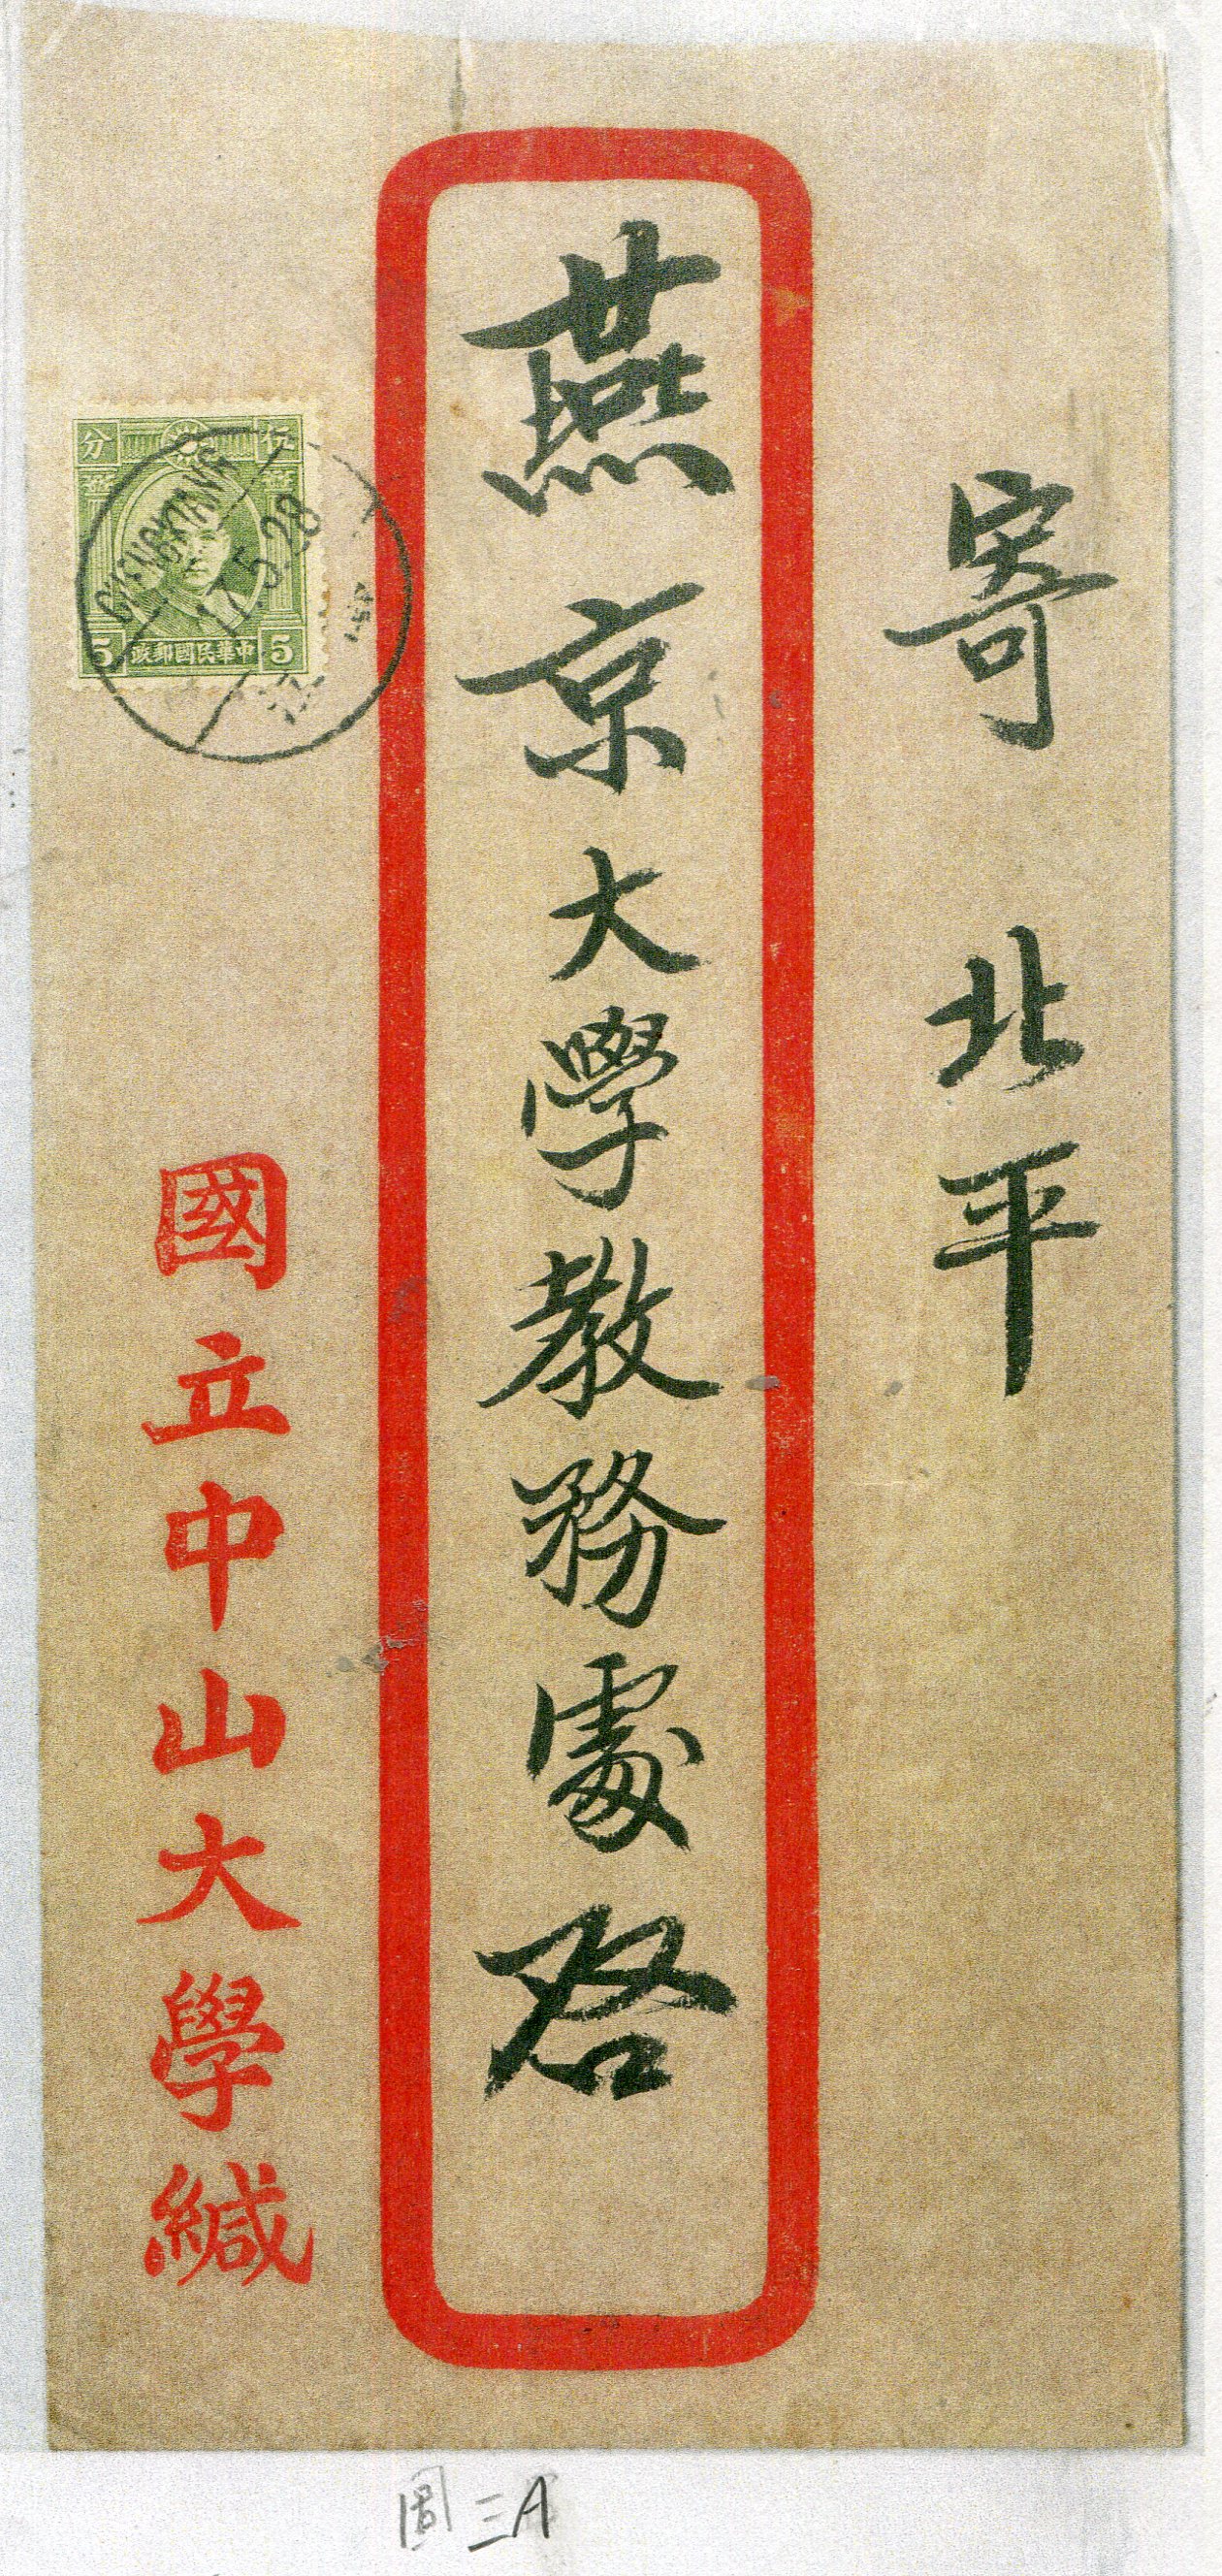 寄北平
燕京大學教務處啓
國立中山大學緘
分 伍
壹 壹
5 政郵國民華中 5
CHENGKIANG
17.5.28
圖三A